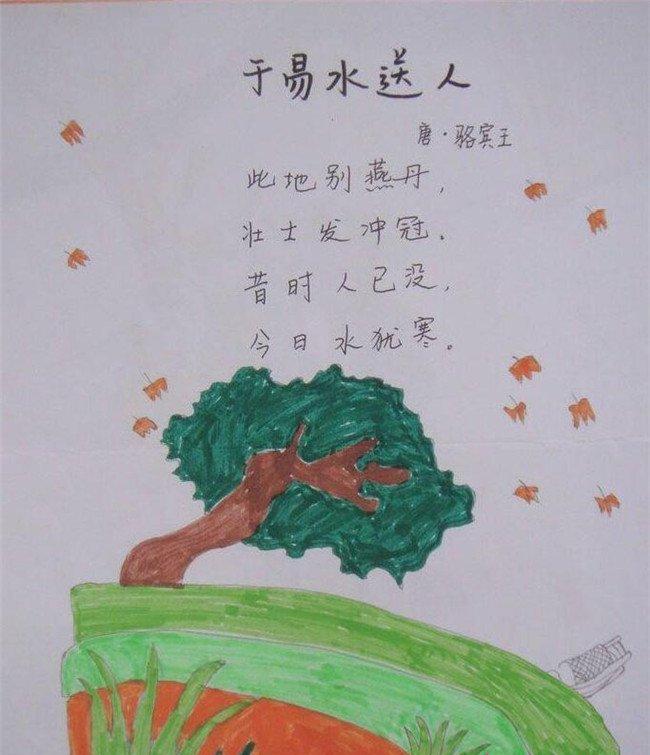 于易水送人
唐·骆宾王
此地别燕丹,
壮士发冲冠.
昔时人已没,
今日水犹寒。